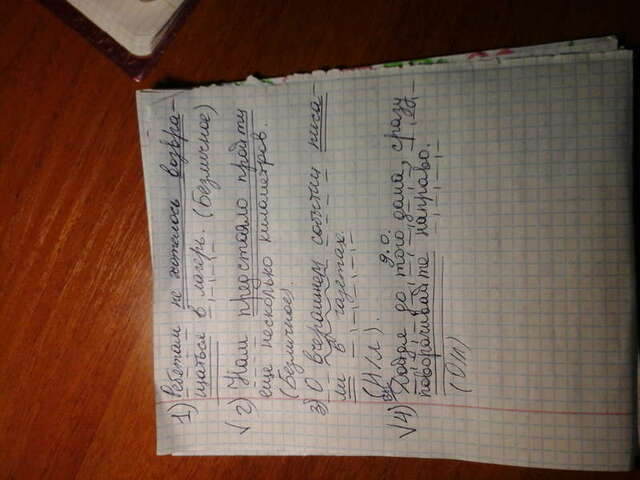 1) Ребятам не хотелось возвра-
щаться в лагерь. (Безличное)
√ 2) Нам предстояло пройти
еще несколько километров.
(Безличное).
3) О вчерашнем событии писа-
ли в газетах.
(Н/л).
д.о.
√4) Дойдя до того дома, сразу
поворачивайте направо.
(О/л)